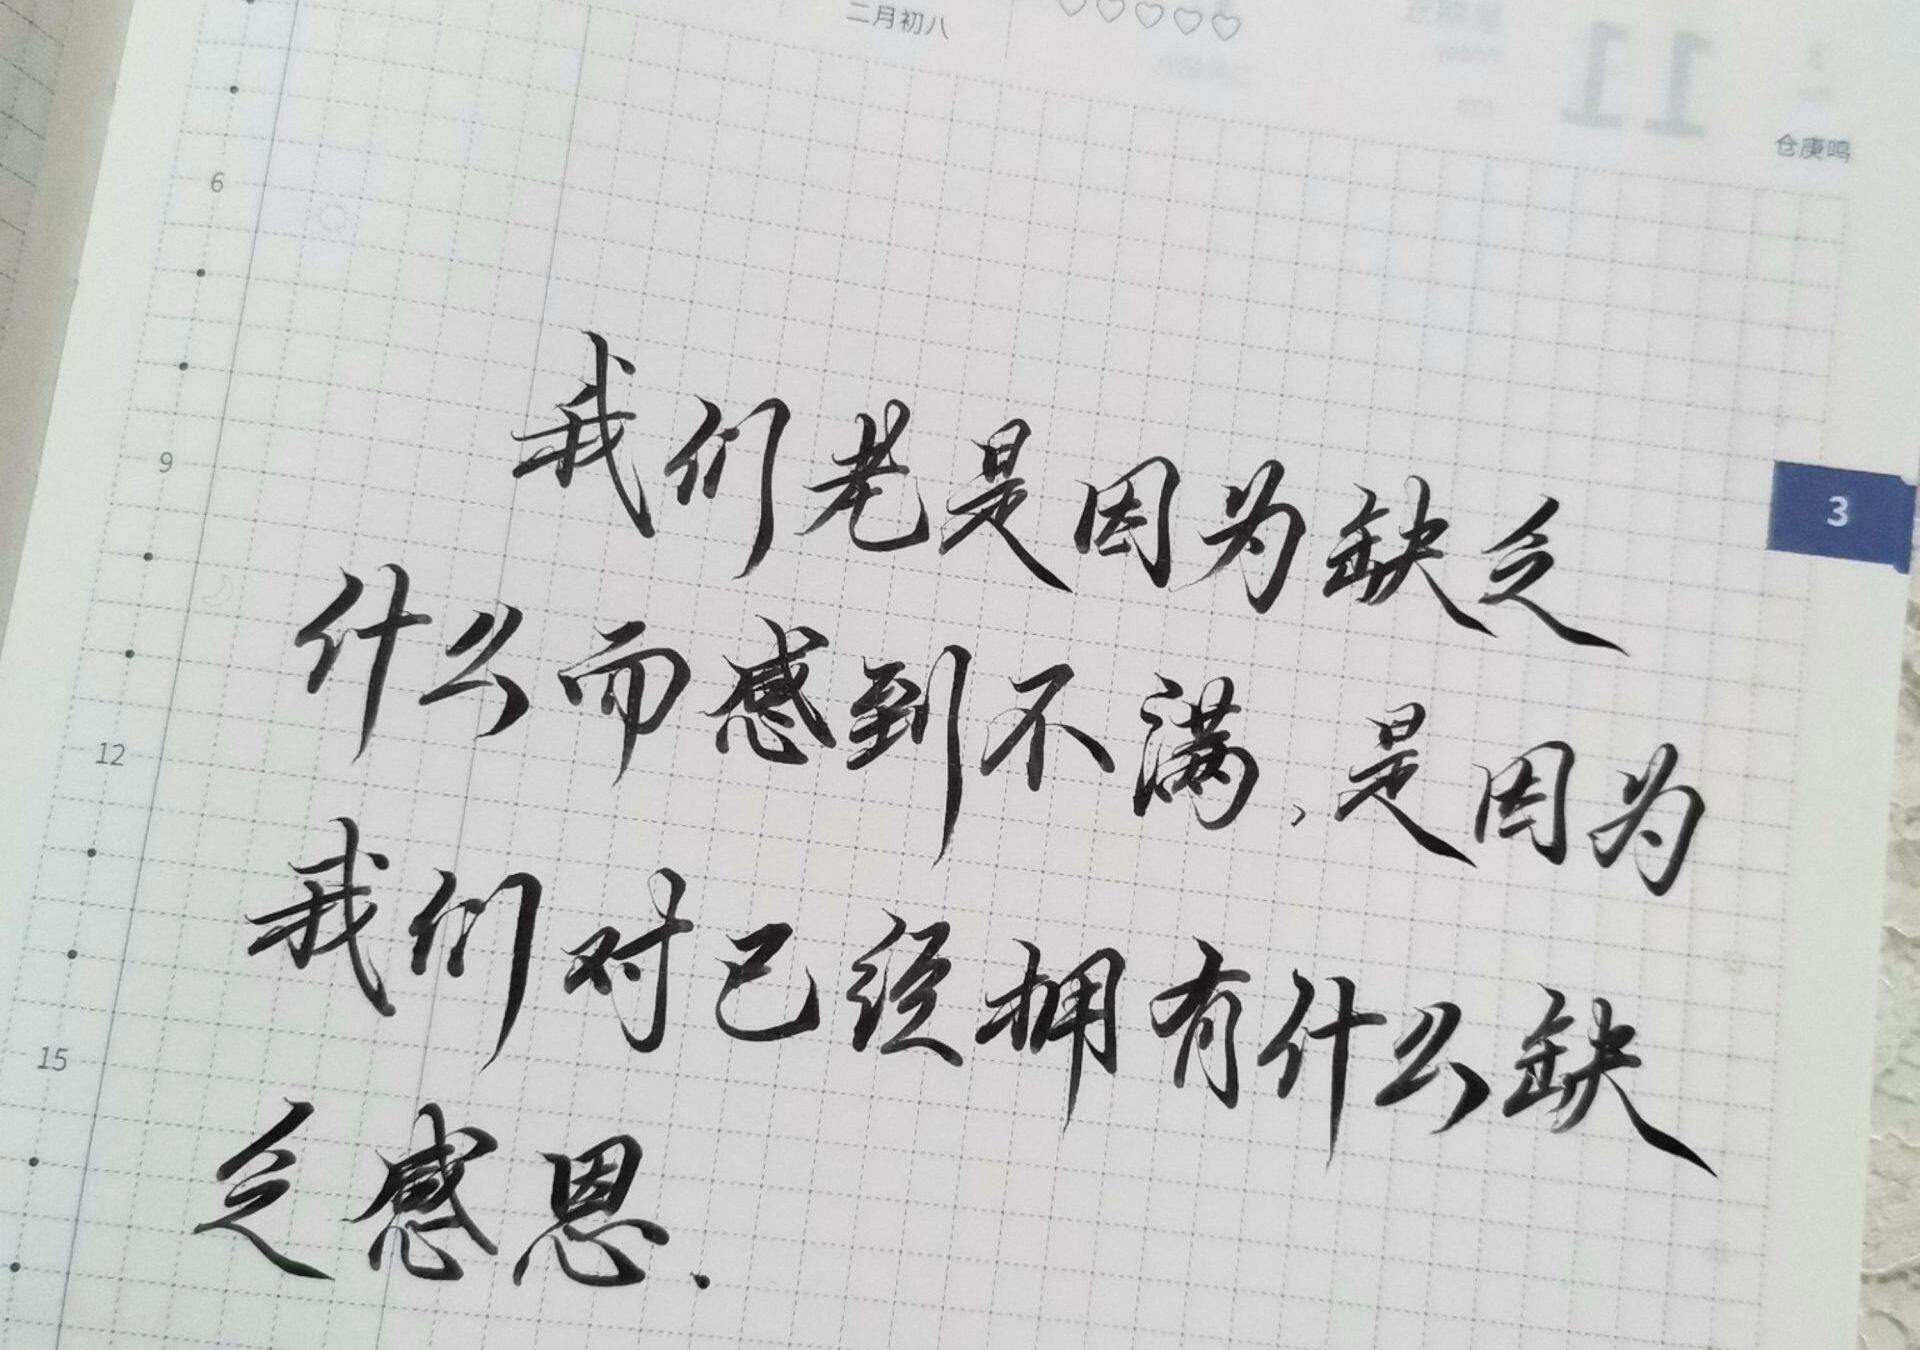 二月初八
11
仓庚鸣
6
3
我们老是因为缺乏
9
什么而感到不满,是因为
12
我们对已经拥有什么缺
15
乏感恩.